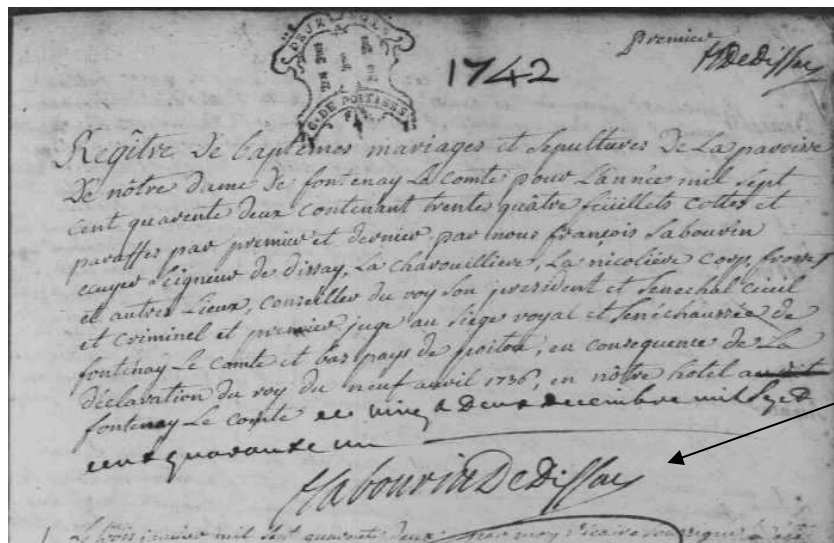 DEUX SOLS
G. DE POITIERS
1742
premier
HDeDissay
Regître de baptêmes mariages et sepultures de La paroisse
de nôtre dame de fontenay Le comte pour L'année mil sept
cent quarente deux contenant trente quatre feüillets cottes et
paraffes par premier et dernier par nous françois Sabourin
ecuyer Seigneur de dissay, La charouilliere, La nicoliére
et autres Lieux, conseiller du roy son president et Senechal civil
et criminel et premier juge au Siége royal et Senéchaussée de
fontenay Le comte et bas pays de poitou, en consequence de La
déclaration du roy du neuf avril 1736, en nôtre hôtel audit
fontenay Le comte ce vingt deux decembre mil Sept
cent quarante un
Sabourin DeDissay
Le trois janvier mil sept quarente deux par moy vicaire soussigné a été